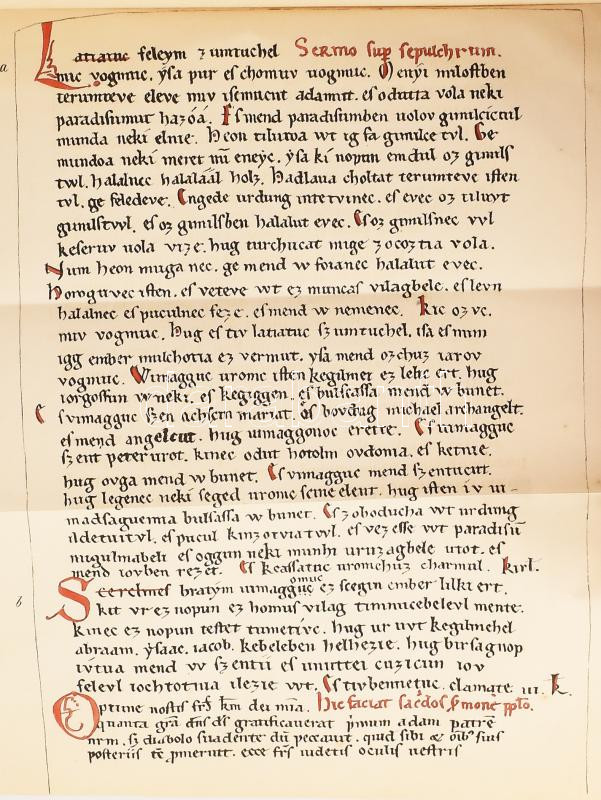 a
Latiatuc feleym zumtuchel Sermo sup sepulchrum.
mic vogmuc. ysa pur es chomuv uogmuc. Menyi milostben
terumteve eleve miv isemucut adamut. es odutta vola neki
paradisumut hazóá. Es mend paradisumben uolov gimilcictul
munda neki elnie. Heon tilutoa wt ig fa gimilce tvl. Ge
mundoa neki meret nū eneyc. ysa ki nopun emdul oz gimils
twl. halalnec halaláál holz. Hadlaua choltat terumteve isten
tvl. ge feledeve. Engede urdung intetvinec. es evec oz tiluvt
gimilstvvl. es oz gimilsben halalut evec. Es oz gimilsnec vvl
keseruv uola vize. hug turchucat mige zocoztia vola.
Num heon muga nec. ge mend w foianec halalut evec.
horoguvec isten. es veteve wt ez muncas vilagbele. es levn
halalnec es puculnec feze. es mend w nemenec. Kic ozvc.
miv vogmuc. Hug es tiv latiatuv szumtuchel. isa es num
igg ember mulchotia ez vermut. ysa mend ozchuz iarov
vogmuc. Wimagguc uromc isten kegilmet ez lelic ert. hug
iorgossun w neki. es kegiggen. es bulsassa mend w bunet.
Es vimagguc szen achscin mariat. es bovdug michael archangelt.
es mend angelcut. hug uimaggonoc erette. Es uimagguc
szent peter urot. kinec odut hotolm ovdonia. es ketnie.
hug ovga mend w bunet. Es vimagguc mend szentucut.
hug legenec neki seged uromc scine eleut. hug isten iv ui-
madsaguemia bulsassa w bunet. Es zoboducha wt urdung
ildetuitvl. es pucul kinzotviatwl. es vezesse wt paradisū
nugulmabeli es oggun neki munhi uruzagbele utot. es
mend iovben rezet. Es keassatuc uromchuz charmul. Kirl.
b
Scerelmes bratym uimagg omuc uc ez scegin ember lilki ert.
kit vr ez nopun ez homus vilag timnucebeleul mente.
kinec ez nopun testet tumetivc. hug ur uvt kegilmehel
abraam. ysaac. iacob. kebeleben helhezie. hug birsagnop
ivtua mend vv szentii es unuttei cuzicun iov
felevl iochtotnia ilezie wt. Es tivbennetuc. clamate iii. K.
Optime nostis frs̄ km̄ dei mīa. Hic faciat sacdos pmonē pplo.
quanta grā dn̄s ds̄ gratificauerat pmum adam patrē
nrm. sz diabolo suadente dū peccauit. quid sibi & oībꝰ suis
posteriis tē pmerunt. ecce frs̄ uidetis oculis uestris